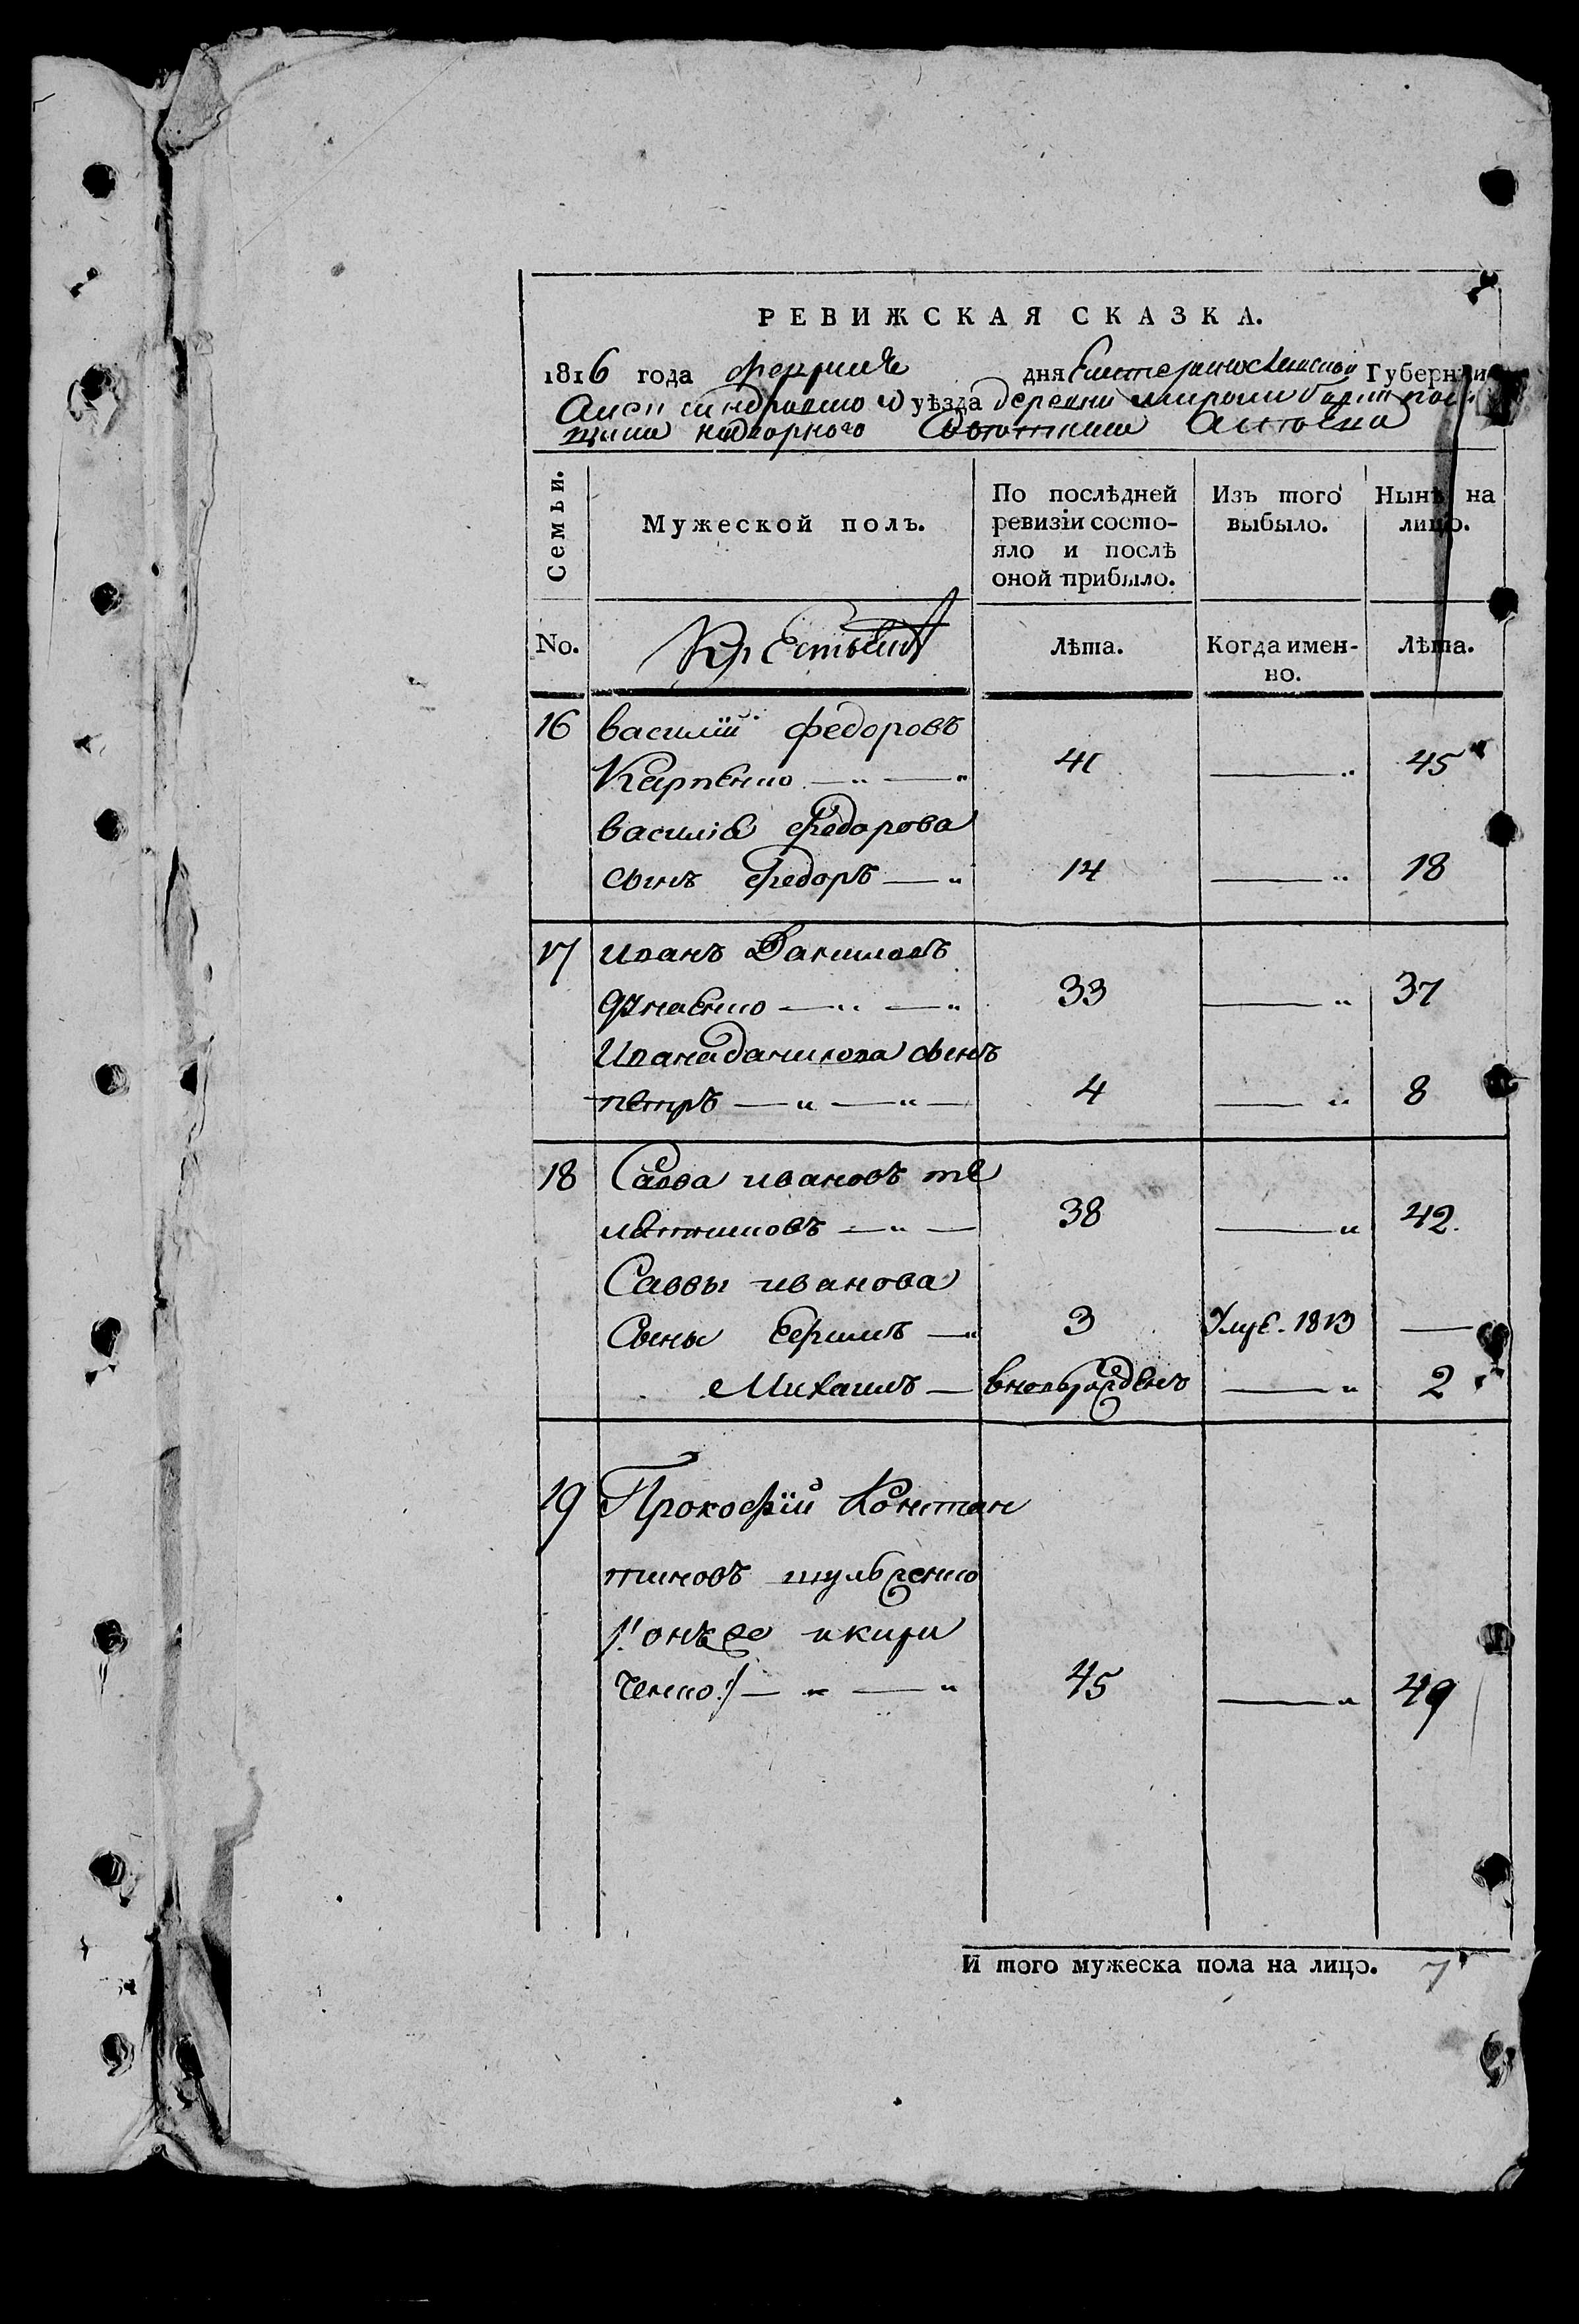 РЕВИЖСКАЯ СКАЗКА.
1816 года февраля дня Екатеринославской Губерніи
Александровского уѣзда деревни
надворного Советника
Семьи.
Мужеской полъ.
По послѣдней ревизіи состо-
яло и послѣ
оной прибыло.
Изъ того
выбыло.
Нынѣ на
лицо.
No.
Крестьяне
Лѣта.
Когда имен-
но.
Лѣта.
16 василій федоровъ
Карпенко — „ — „ 41 — „ 45
василія федорова
сынъ федоръ — „ 14 — „ 18
17 иванъ Даниловъ
— „ — „ 33 — „ 37
Ивана данилова сынъ
петръ — „ — „ — 4 — „ 8
18 Савва ивановъ
— „ — 38 — „ 42.
Саввы иванова
Сыны — „ 3 1813 —
Михаилъ — вновьрожденъ — „ 2
19 Прокофій Констан
тиновъ шульженко
/: онъже икири
ченко :/ — „ — „ 45 — „ 49
И того мужеска пола на лицо. 7